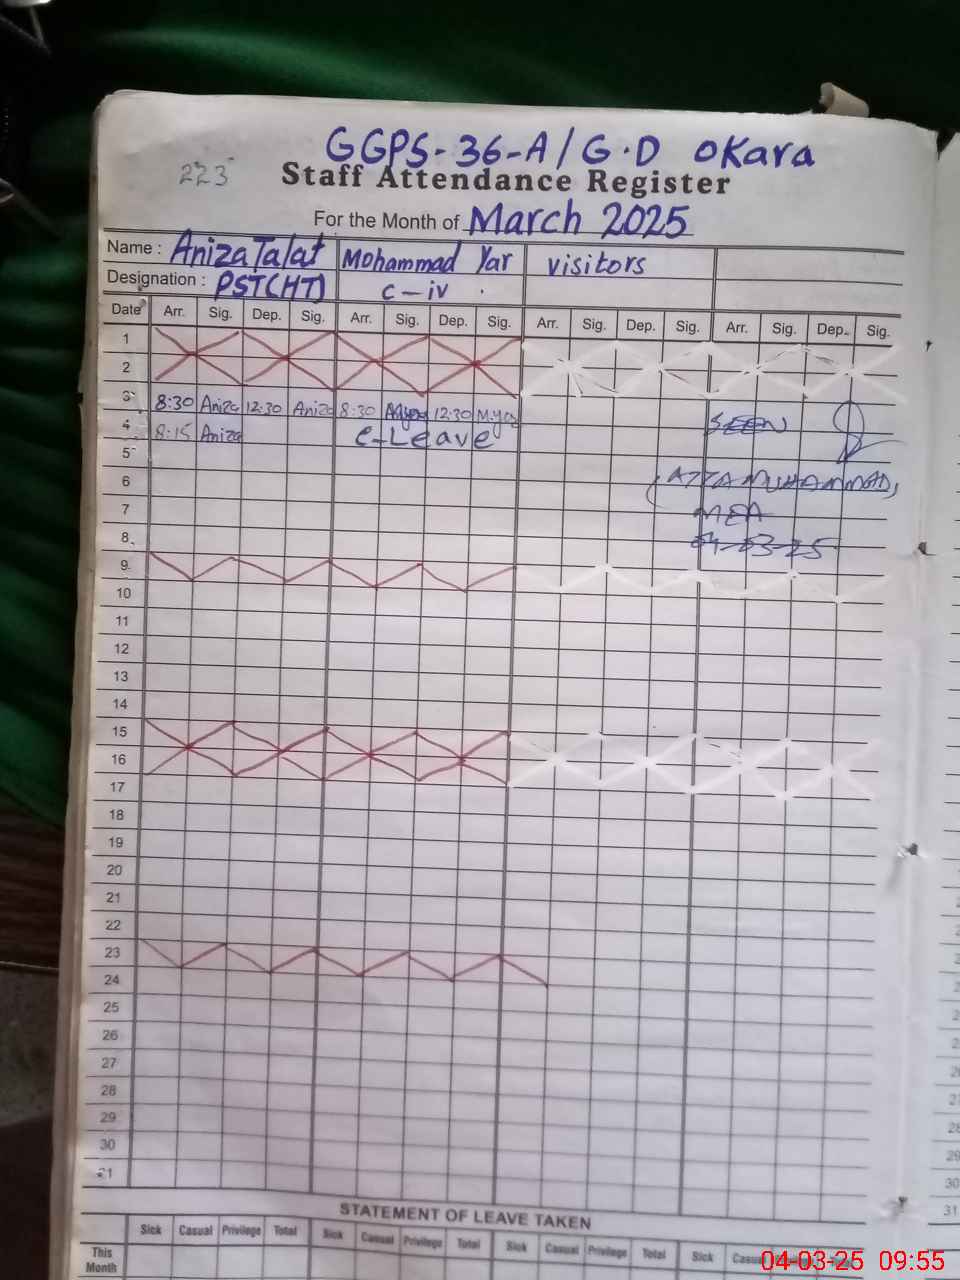 GGPS-36-A/G.D OKara
223
Staff Attendance Register
For the Month of March 2025
Name : Aniza Talat Mohammad Yar visitors
Designation : PST(HT) C-iv
Date Arr. Sig. Dep. Sig. Arr. Sig. Dep. Sig. Arr. Sig. Dep. Sig. Arr. Sig. Dep. Sig.
1
2
3 8:30 Aniza 12:30 Aniza 8:30 M.yar 12:30 M.yar
4 8:15 Aniza C-Leave SEEN
5
6 (ATTA MUHAMMAD)
7 MEA
8 04-03-25
9
10
11
12
13
14
15
16
17
18
19
20
21
22
23
24
25
26
27
28
29
30
31
STATEMENT OF LEAVE TAKEN
Sick Casual Privilege Total Sick Casual Privilege Total Sick Casual Privilege Total Sick Casual Total
This Month
04-03-25 09:55